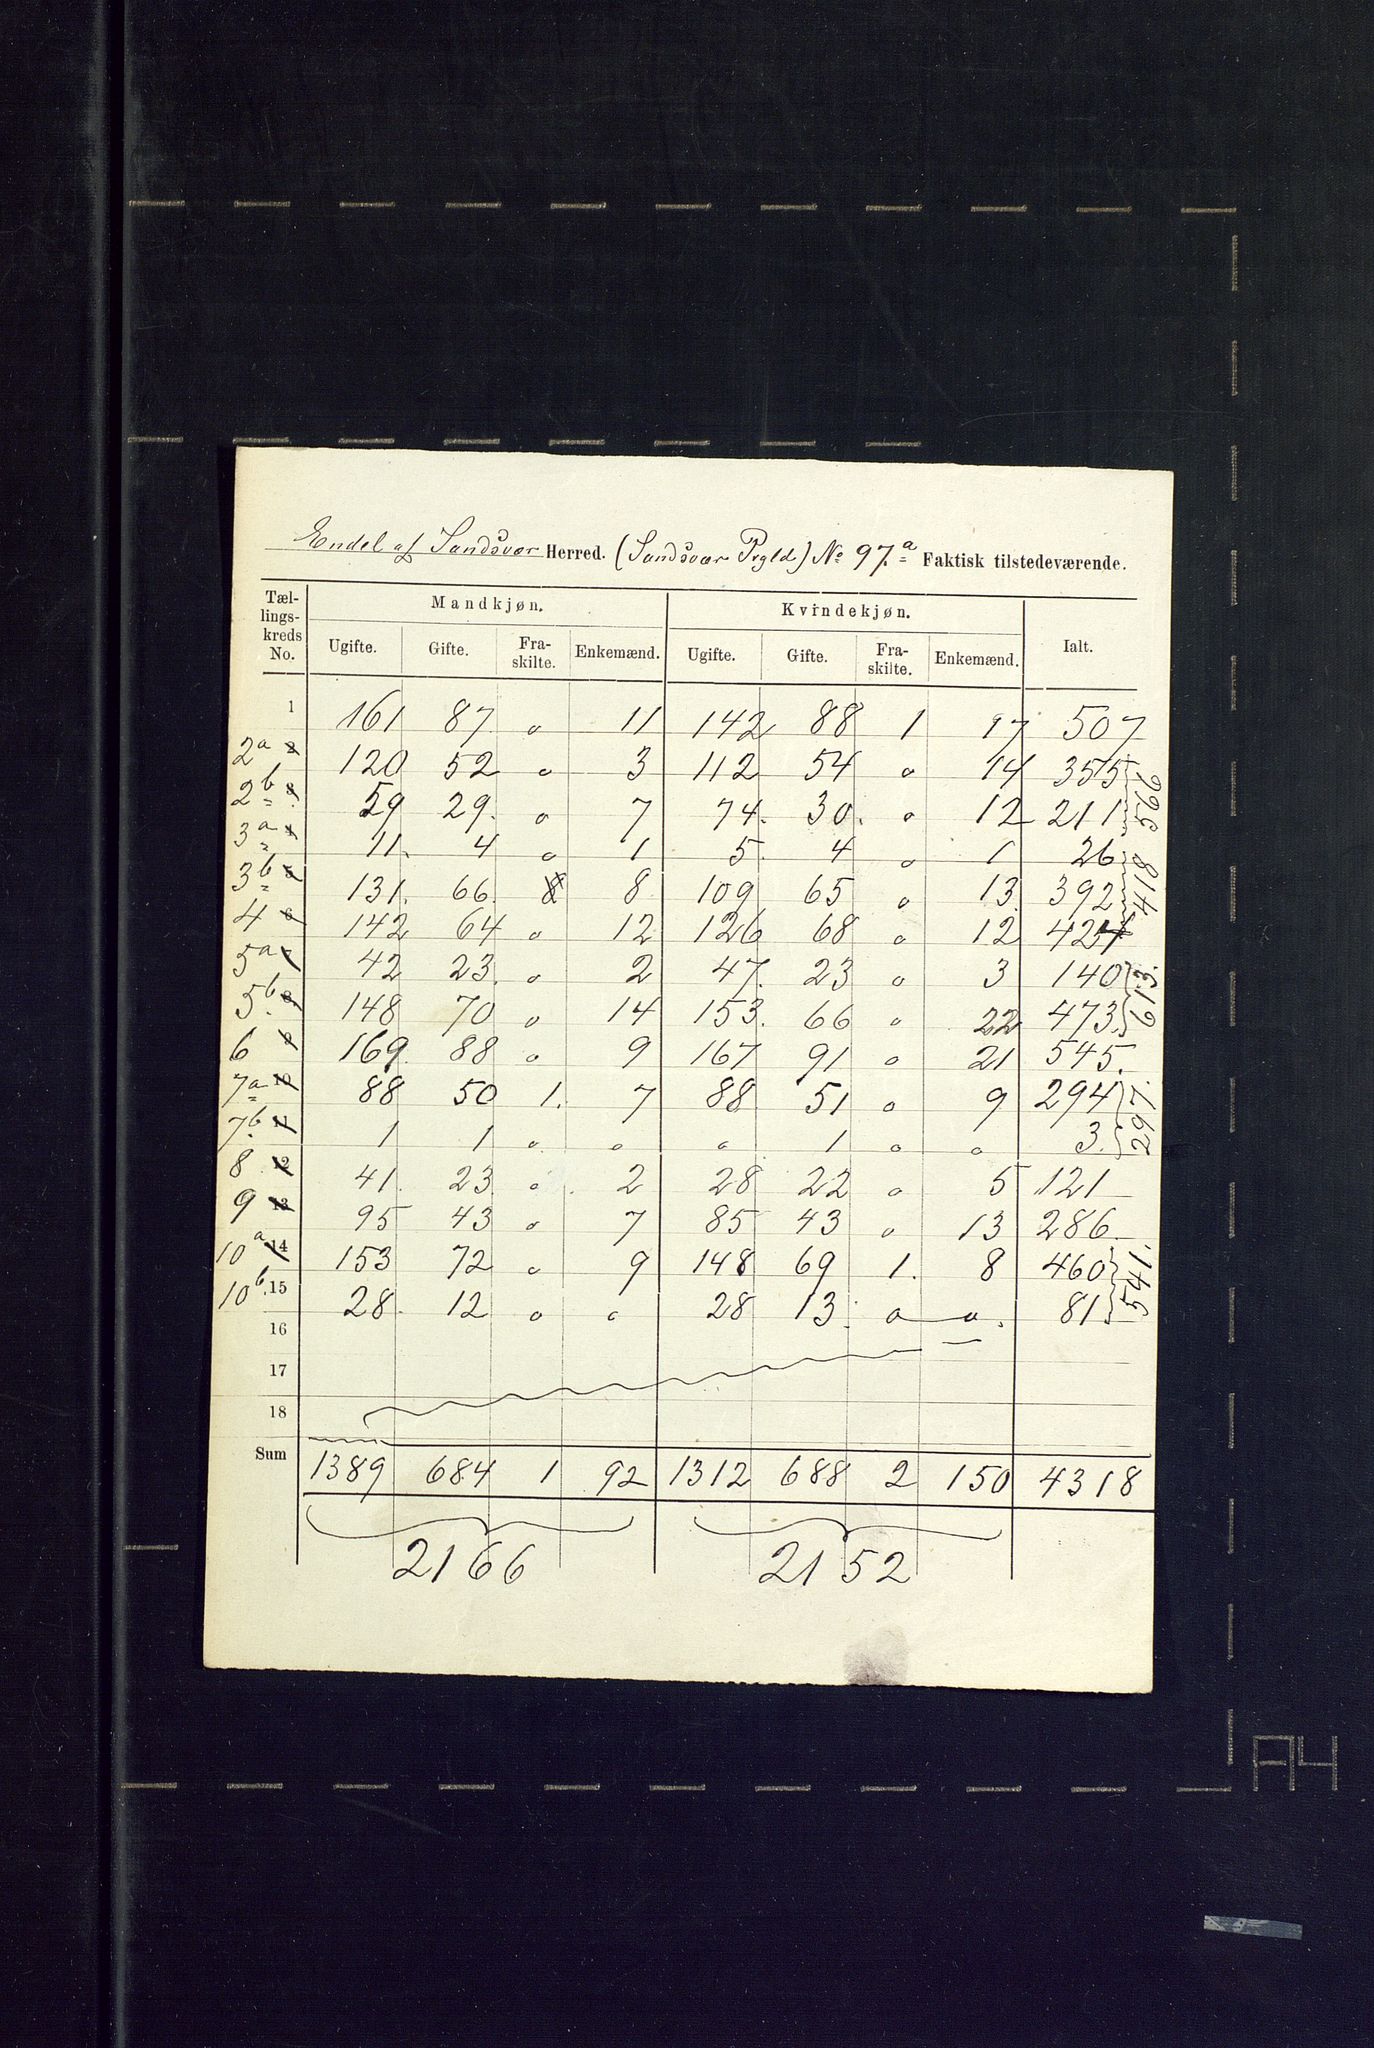 Endel af Sandsvær Herred. (Sandsvær Prgld) No 97.a Faktisk tilstedeværende.
Tællingskreds No. Mandkjøn. Kvindekjøn. Ialt.
Ugifte. Gifte. Fraskilte. Enkemænd. Ugifte. Gifte. Fraskilte. Enkemænd.
1 161 87 o 11 142 88 1 17 507
2a 2 120 52 o 3 112 54 o 14 355
2b 3 59 29. o 7 74. 30. o 12 211 } 566
3a 4 11. 4 o 1 5. 4 o 1 26
3b 5 131. 66. 8 109 65 o 13. 392 } 418
4 6 142 64 o 12 126 68 o 12 424
5a 7 42 23. o 2 47. 23 o 3 140
5b. 8 148 70 o 14 153. 66 o 22 473. } 613.
6 9 169. 88 o 9 167 91 o 21 545.
7a 10 88 50 1. 7 88 51 o 9 294
7b. 11 1 1 o. o o 1 o o 3. } 297.
8 12 41. 23. o . 2 28 22 o 5 121
9 13 95 43 o 7 85 43 o 13 286.
10a 14 153 72 o 9 148 69 1. 8 460
10b. 15 28. 12 o o 28 13. o o. 81 } 541.
16
17
18
Sum 1389 684 1 92 1312 688 2 150 4318
2166 2152
A4